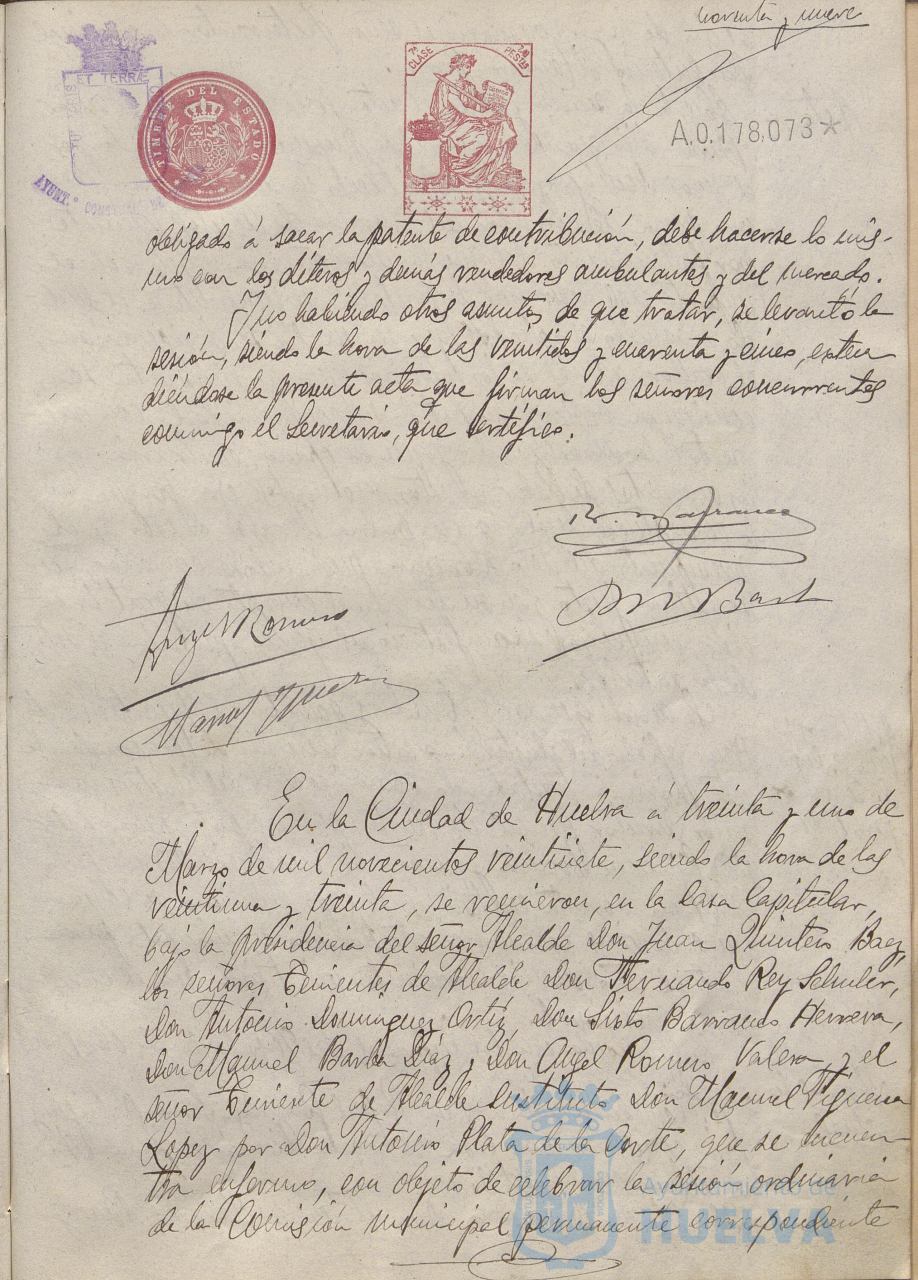 noventa y nueve
ET TERRÆ
TIMBRE DEL ESTADO
7ª CLASE
PESTAS
A.0.178.073*
AYUNT.º CONSTNAL DE
obligado á sacar la patente de contribución, debe hacerse lo mis-
mo con los diteros y demás vendedores ambulantes y del mercado.
Y no habiendo otros asuntos de que tratar, se levantó la
sesión, siendo la hora de las veintidos y cuarenta y cinco, exten
diéndose la presente acta que firman los señores concurrentes
conmigo el Secretario, que certifico.
Angel Romero
Manuel Figueroa
En la Ciudad de Huelva á treinta y uno de
Marzo de mil novecientos veintisiete, siendo la hora de las
veintiuna y treinta, se reunieron, en la Casa Capitular,
bajo la presidencia del señor Alcalde Don Juan Quintero Baez,
los señores Tenientes de Alcalde Don Fernando Rey Schuler,
Don Antonio Dominguez Ortiz, Don Sixto Barranco Herrera,
Don Manuel Barba Diaz y Don Angel Romero Valera, y el
señor Teniente de Alcalde sustituto Don Manuel Figueroa
Lopez por Don Antonio Plata de la Corte, que se encuen
tra enfermo, con objeto de celebrar la sesión ordinaria
de la Comisión municipal permanente correspondiente
Ayuntamiento de
HUELVA